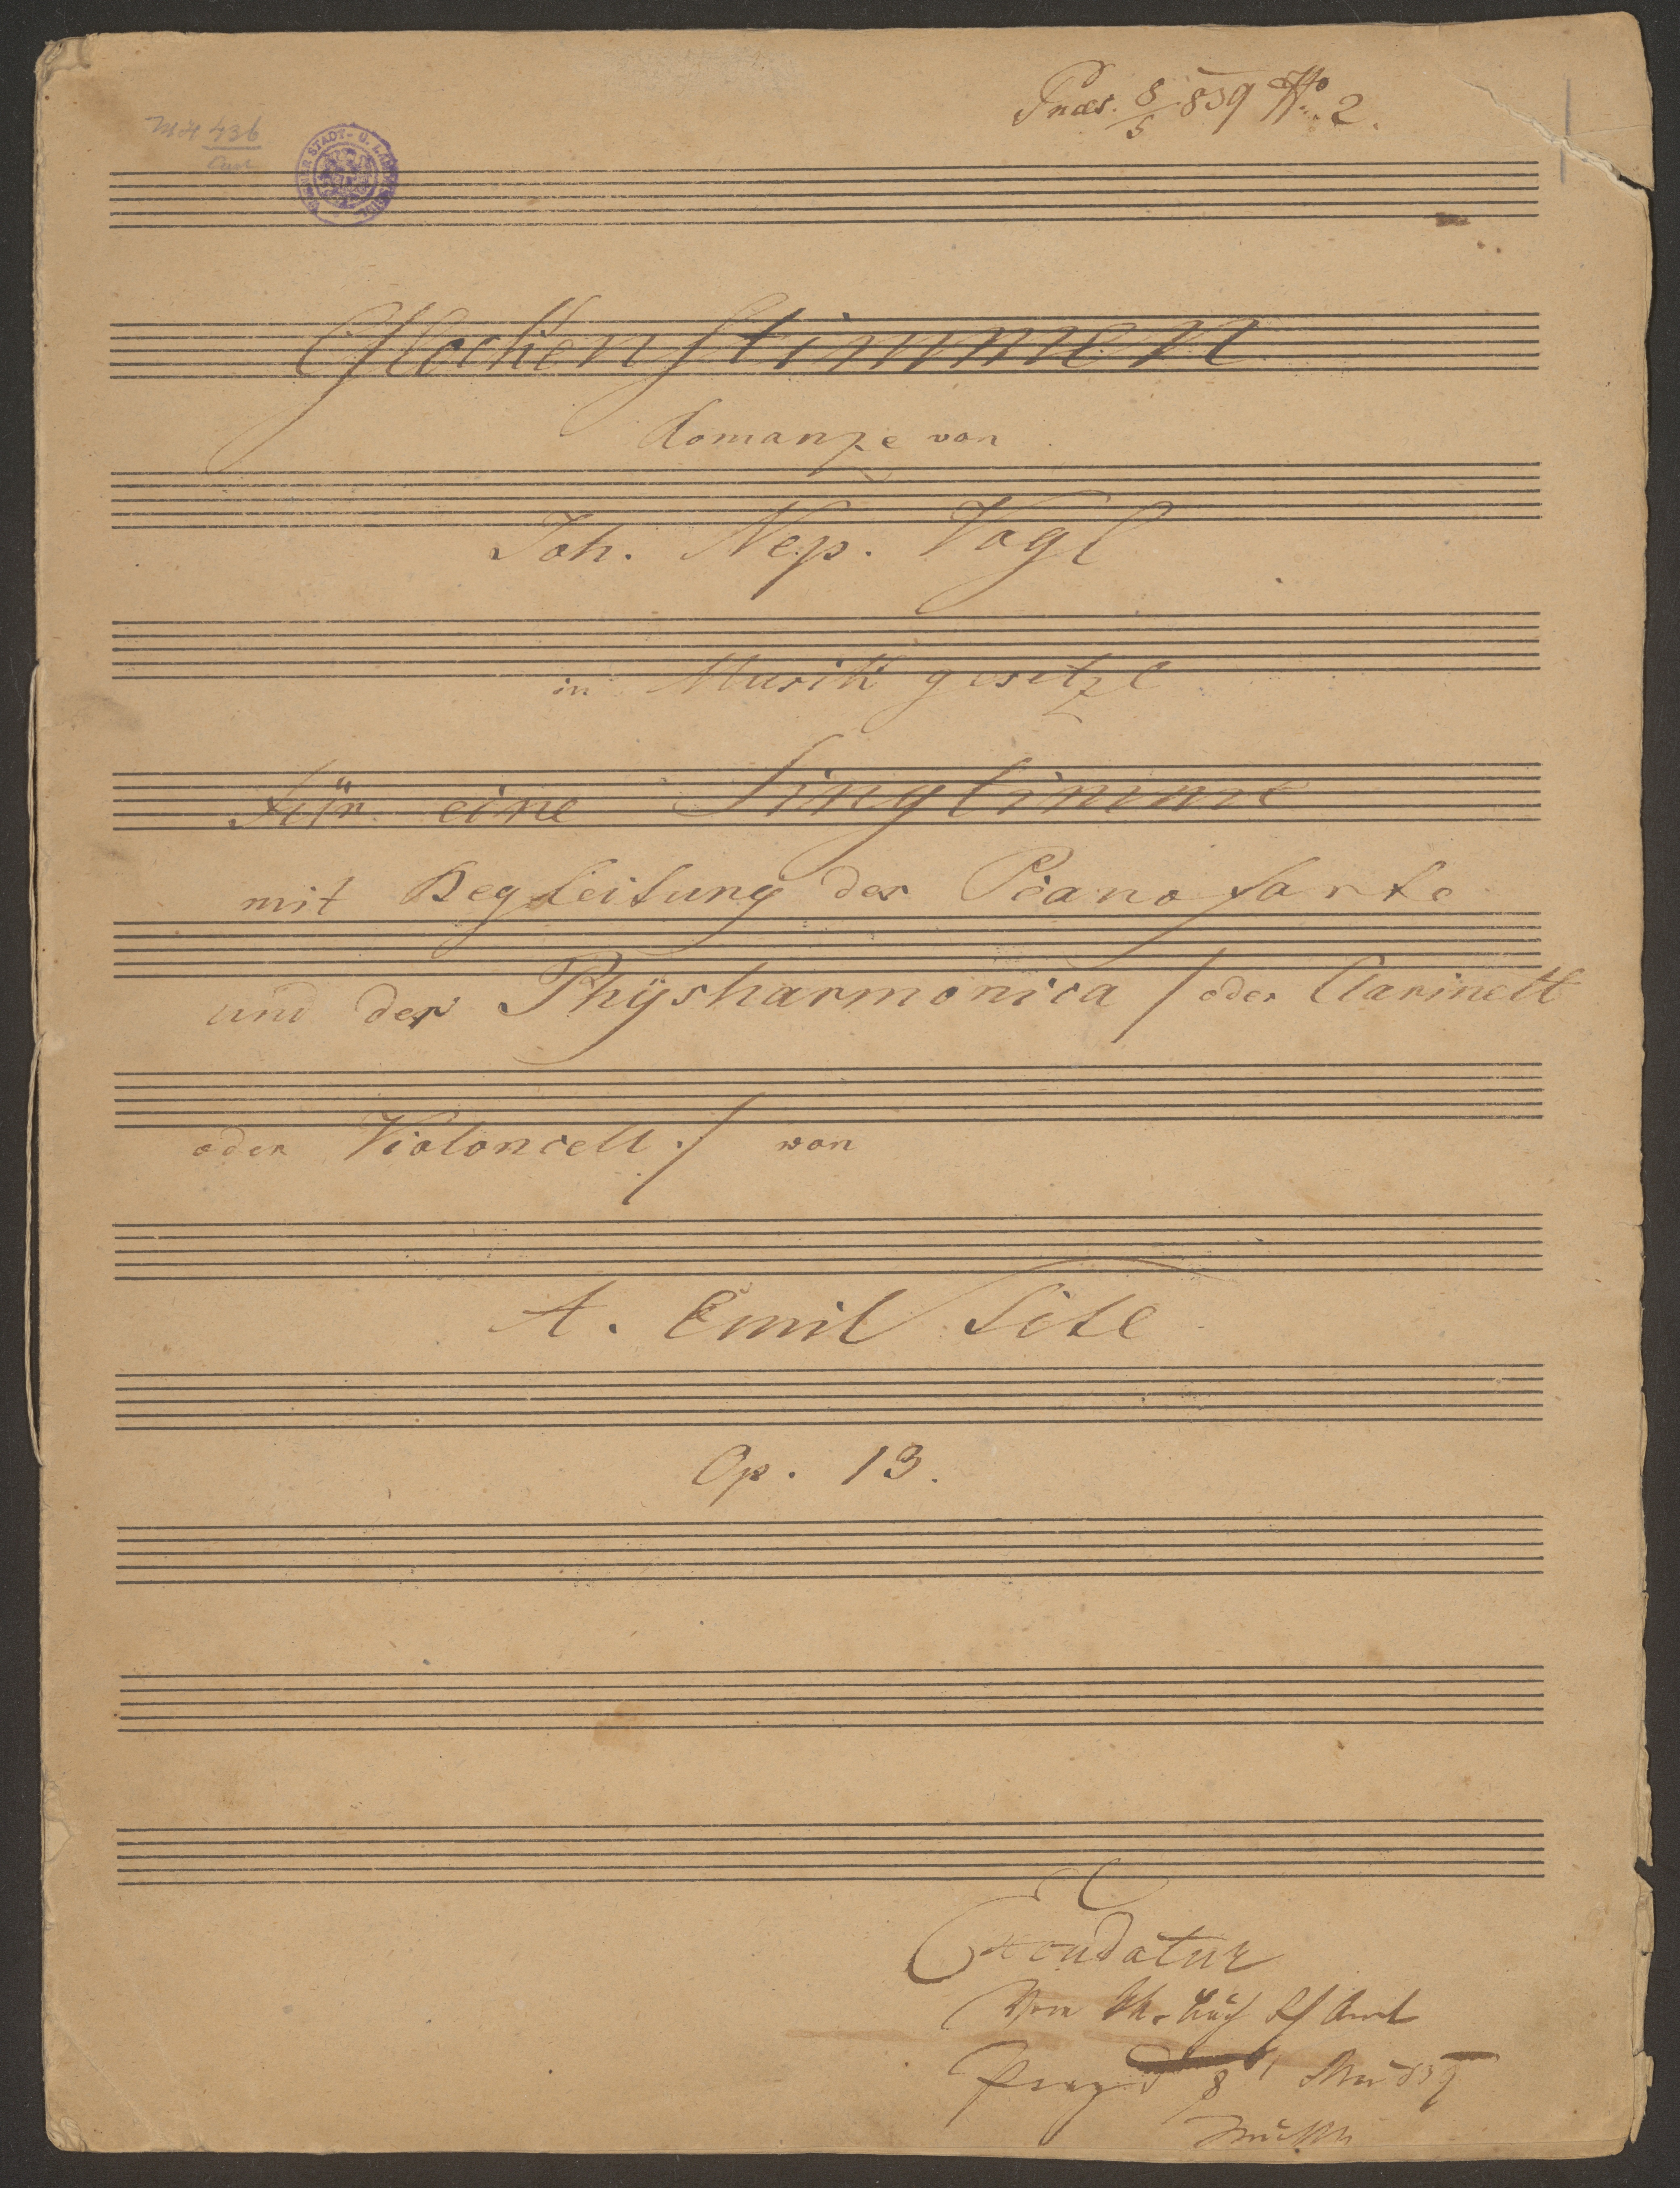 Praes. 8/5 839 No. 2.
MH 436
WIENER STADT- U. LANDES
Glockenstimmen
Romanze von
Joh. Nep. Vogl
in Musik gesetzt
Für eine Singstimme
mit Begleitung des Piano forte
und der Physharmonica / oder Clarinett
oder Violoncell ./ von
A. Emil Titl
Op. 13.
Excudatur
Vom
Prag 8 Mai 839